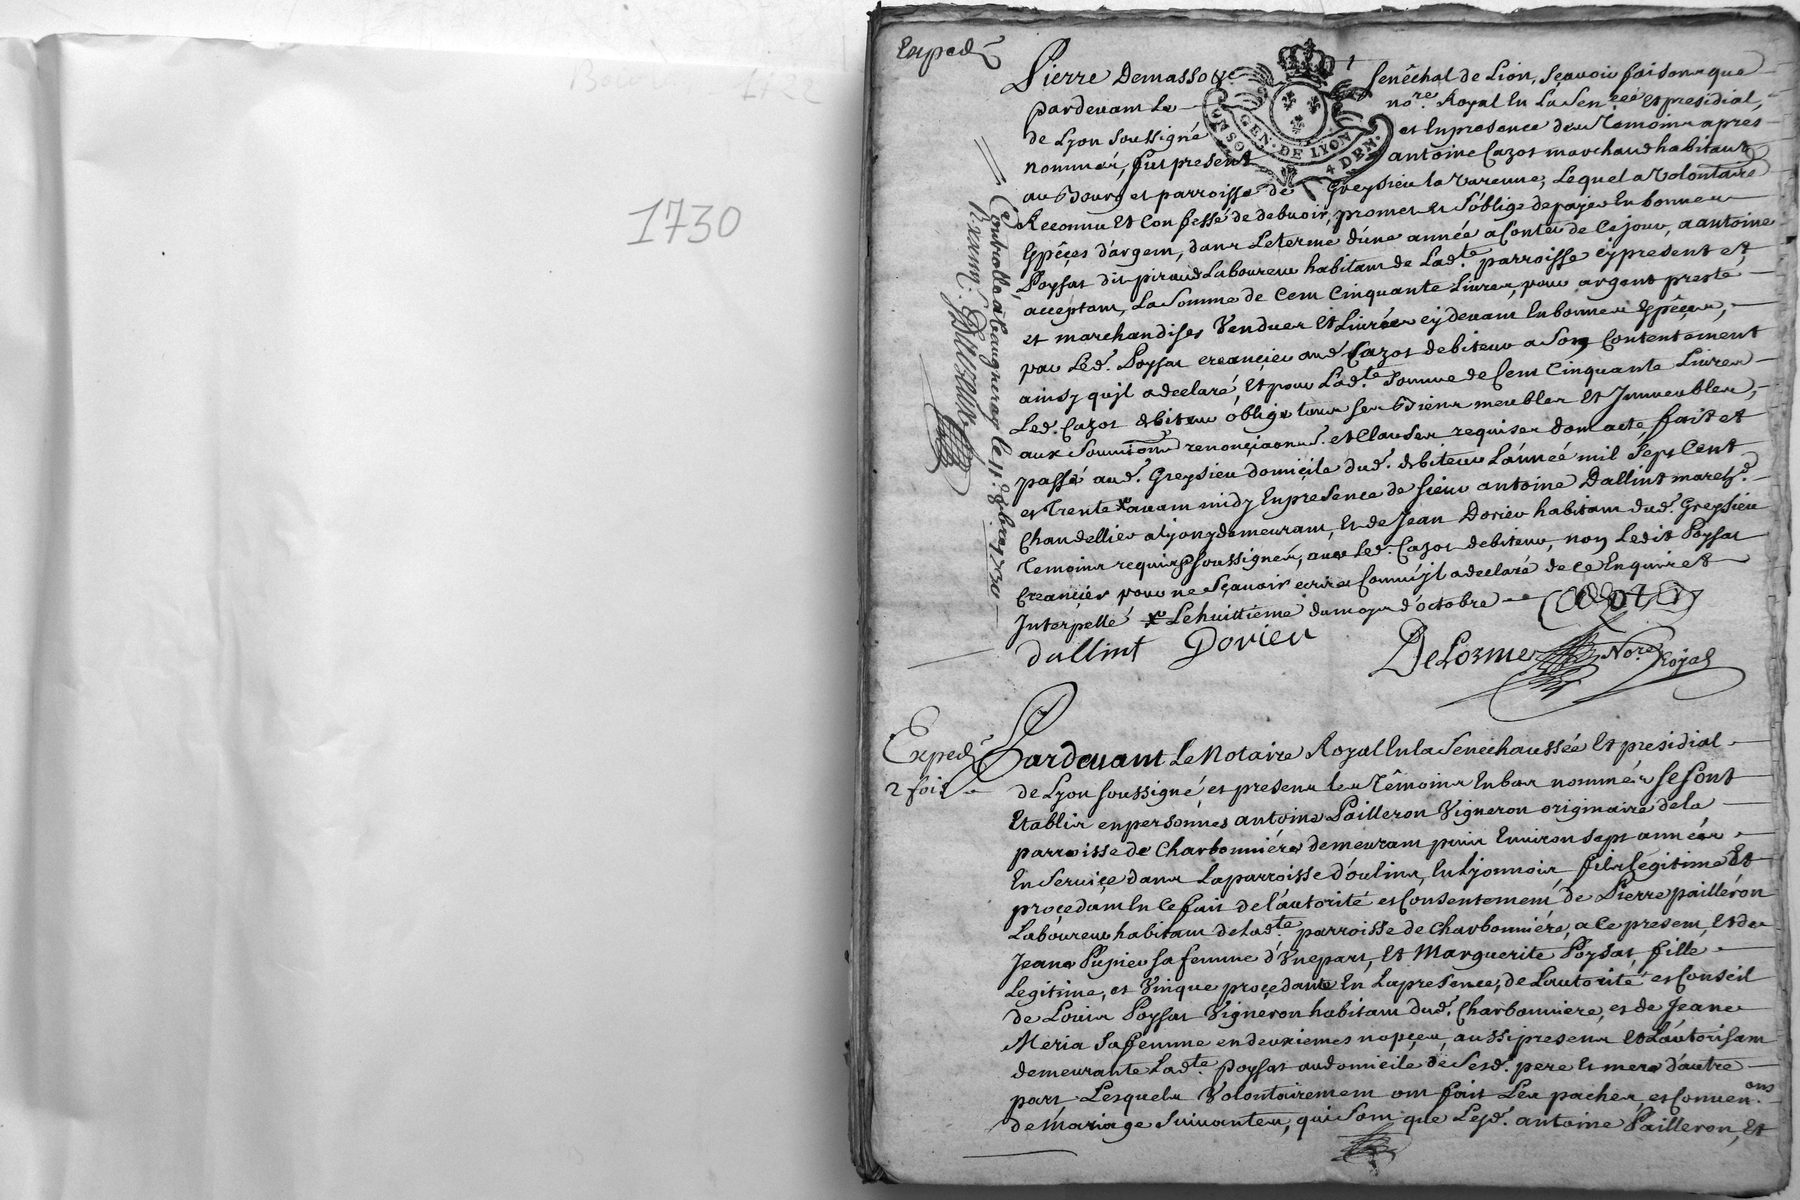 1730
Exped.
Pierre Demasso Senêchal de Lion, Sçavoir faisons que
pardevant Le no.re Royal En La Sen.cée Et presidial,
de Lyon soussigné et En presence des Temoins apres
nommés, fut present antoine Cazot marchand habitant
au Bourg et parroisse de Greysieu la Varenne, Lequel a Volontairt
Reconnu Et Confessé de debvoir, promet Et s'oblige de payer En bonnes
Espêçes d'argent, dans Le terme d'une année a Conter de Ce jour, a antoine
Poysat dit piraud Laboureur habitant de Lad.te parroisse cy present Et
acceptant, La Somme de Cent Cinquante Livres, pour argent presté
et marchandises Vendues Et Livrées cy devant En bonnes Espêçes,
par Led. Poysat creançier aud. Cazot debiteur a Son Contentement
ainsy qu'jl a declaré, Et pour Lad.te Somme de Cent Cinquante Livres
Led. Cazot debiteur oblige tous ses Biens meubles Et Jmmeubles,
aux Soumissions renonçiaons. et Clauses requises dont acte, fait et
passé aud. Greysieu domiçile dud. debiteur L'année mil Sept Cent
et Trente * avant midy En presence de sieur antoine Dallint march.d
Chandellier a Lyon y demeurant, Et de Jean Dorier habitant dud. Greysieu
Temoins requis & soussignés, avec Led. Cazot debiteur, non Ledit Poysat
Creançier pour ne Sçavoir ecrire Comm'jl a declaré de Ce Enquis Et
Interpellé * Le huittieme du moys d'octobre
Cazot
dallint Dorier DeLorme No.re Royal
Controllé a Vaugneray le 11.e 8bre 1730
GEN. DE LYON
4 DEN.
Exped.
2 fois
Pardevant Le Notaire Royal En la Senéchaussée Et presidial
de Lyon soussigné, et presens les Têmoins En bas nommés se sont
Etablis en personnes antoine Pailleron Vigneron originaire de la
parroisse de Charbonniéres demeurant puis Environ sept années
En Serviçe dans La parroisse d'oulins, En Lyonnois, fils Legitime Et
proçedant En Ce fait de l'autorité et Consentement de Pierre pailleron
Laboureur habitant de Lad.te parroisse de Charbonniére, a Ce present, Et de
Jeane Pupier sa femme d'Vne part, Et Marguerite Poysat, fille
Legitime, et Vinque proçedante En La presence, de L'autorité et Conseil
de Louis Poysat Vigneron habitant dud. Charbonniere, et de Jeane
Meria Sa femme en deuxiemes nopçes, aussi presens Et L'autorisant
demeurante Lad.te Poysat au domicile de Sesd. pere Et mere d'autre
part, Lesquels Volontairement ont fait Les paches, et Conven.ons
de Mariage Suivantes, qui Sont que Led. antoine Pailleron, Et